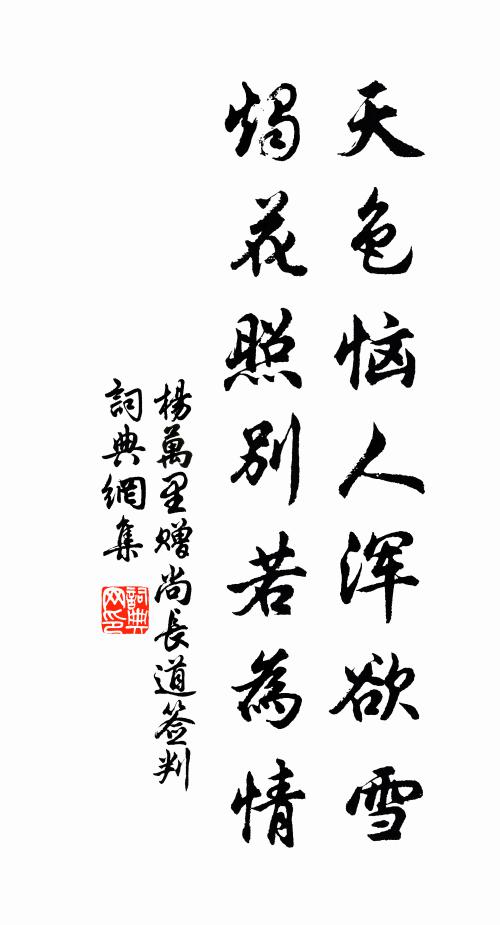 天色恼人浑欲雪
燭花照别若為情
楊萬里赠尚長道签判
詞典網集
詞典
网印